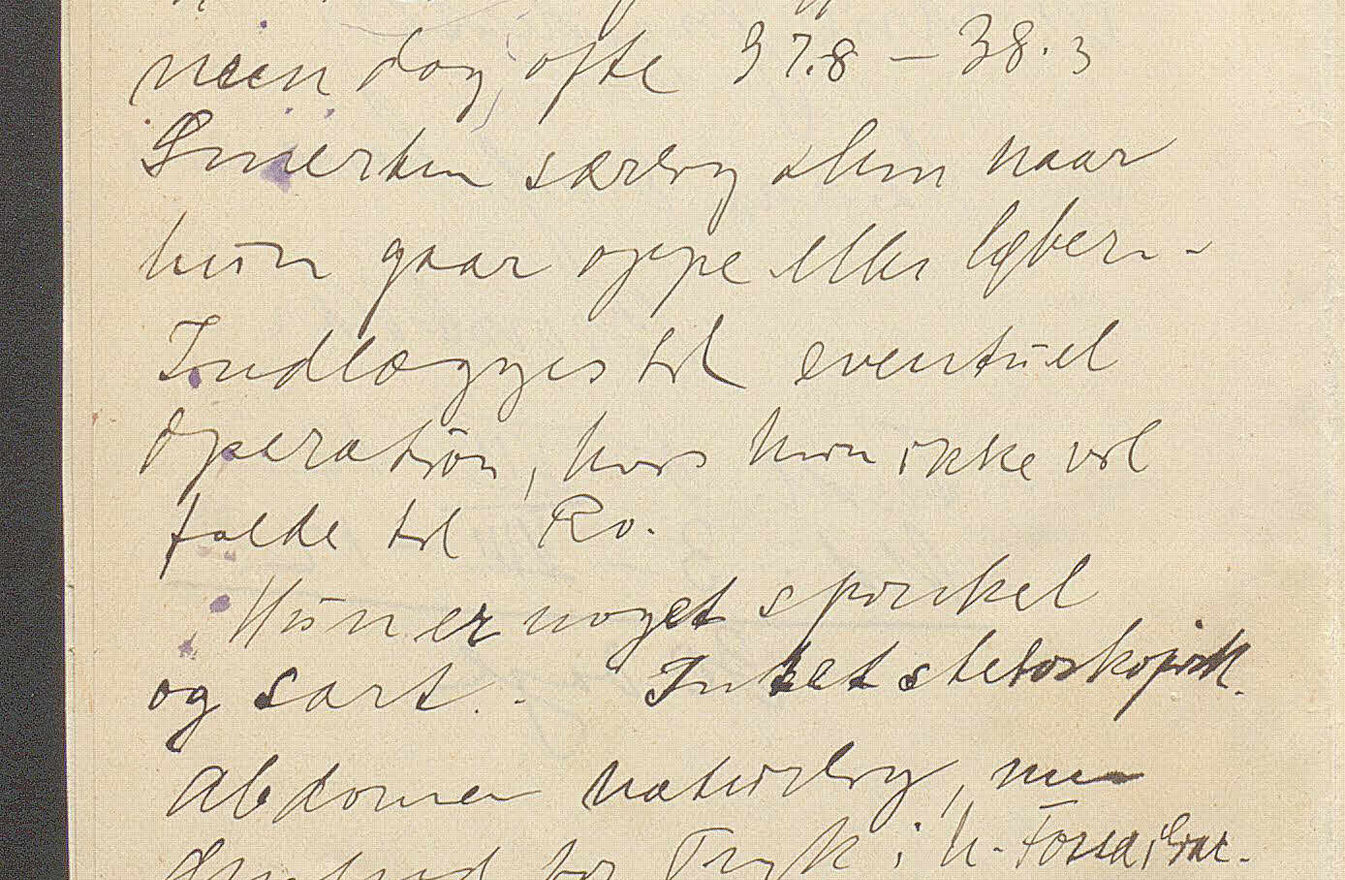 dag, ofte 37.8 – 38.3
Smerten særlig slem naar
hun gaar oppe eller løber. -
Indlægges til eventuel
Operation, hvis hun ikke vil
falde til Ro.
Hun er noget spinkel
og sart. - Intet stetoskopisk.
Abdomen naturlig, men
for Tryk i h. Fossa iliac.